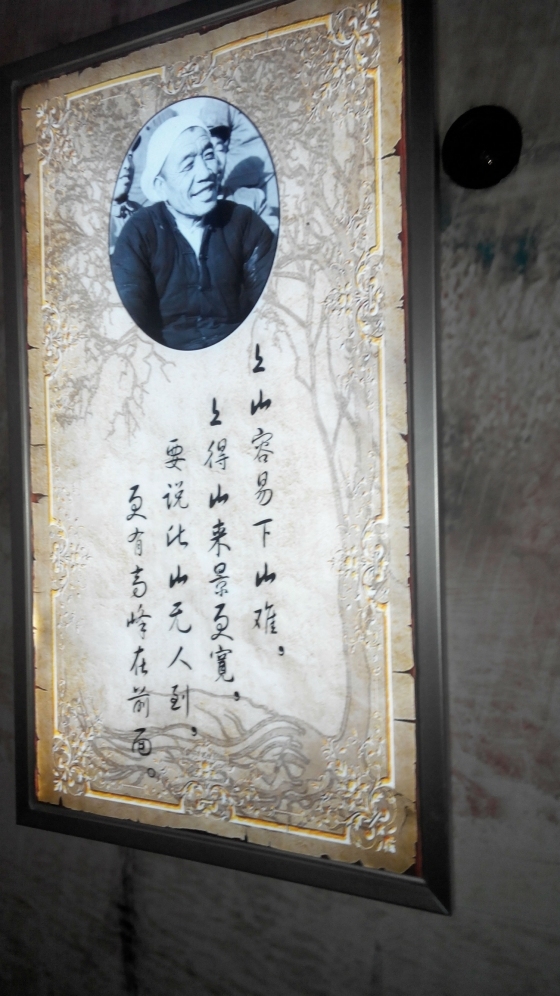 上山容易下山难，
上得山来景更宽，
要说此山无人到，
更有高峰在前面。